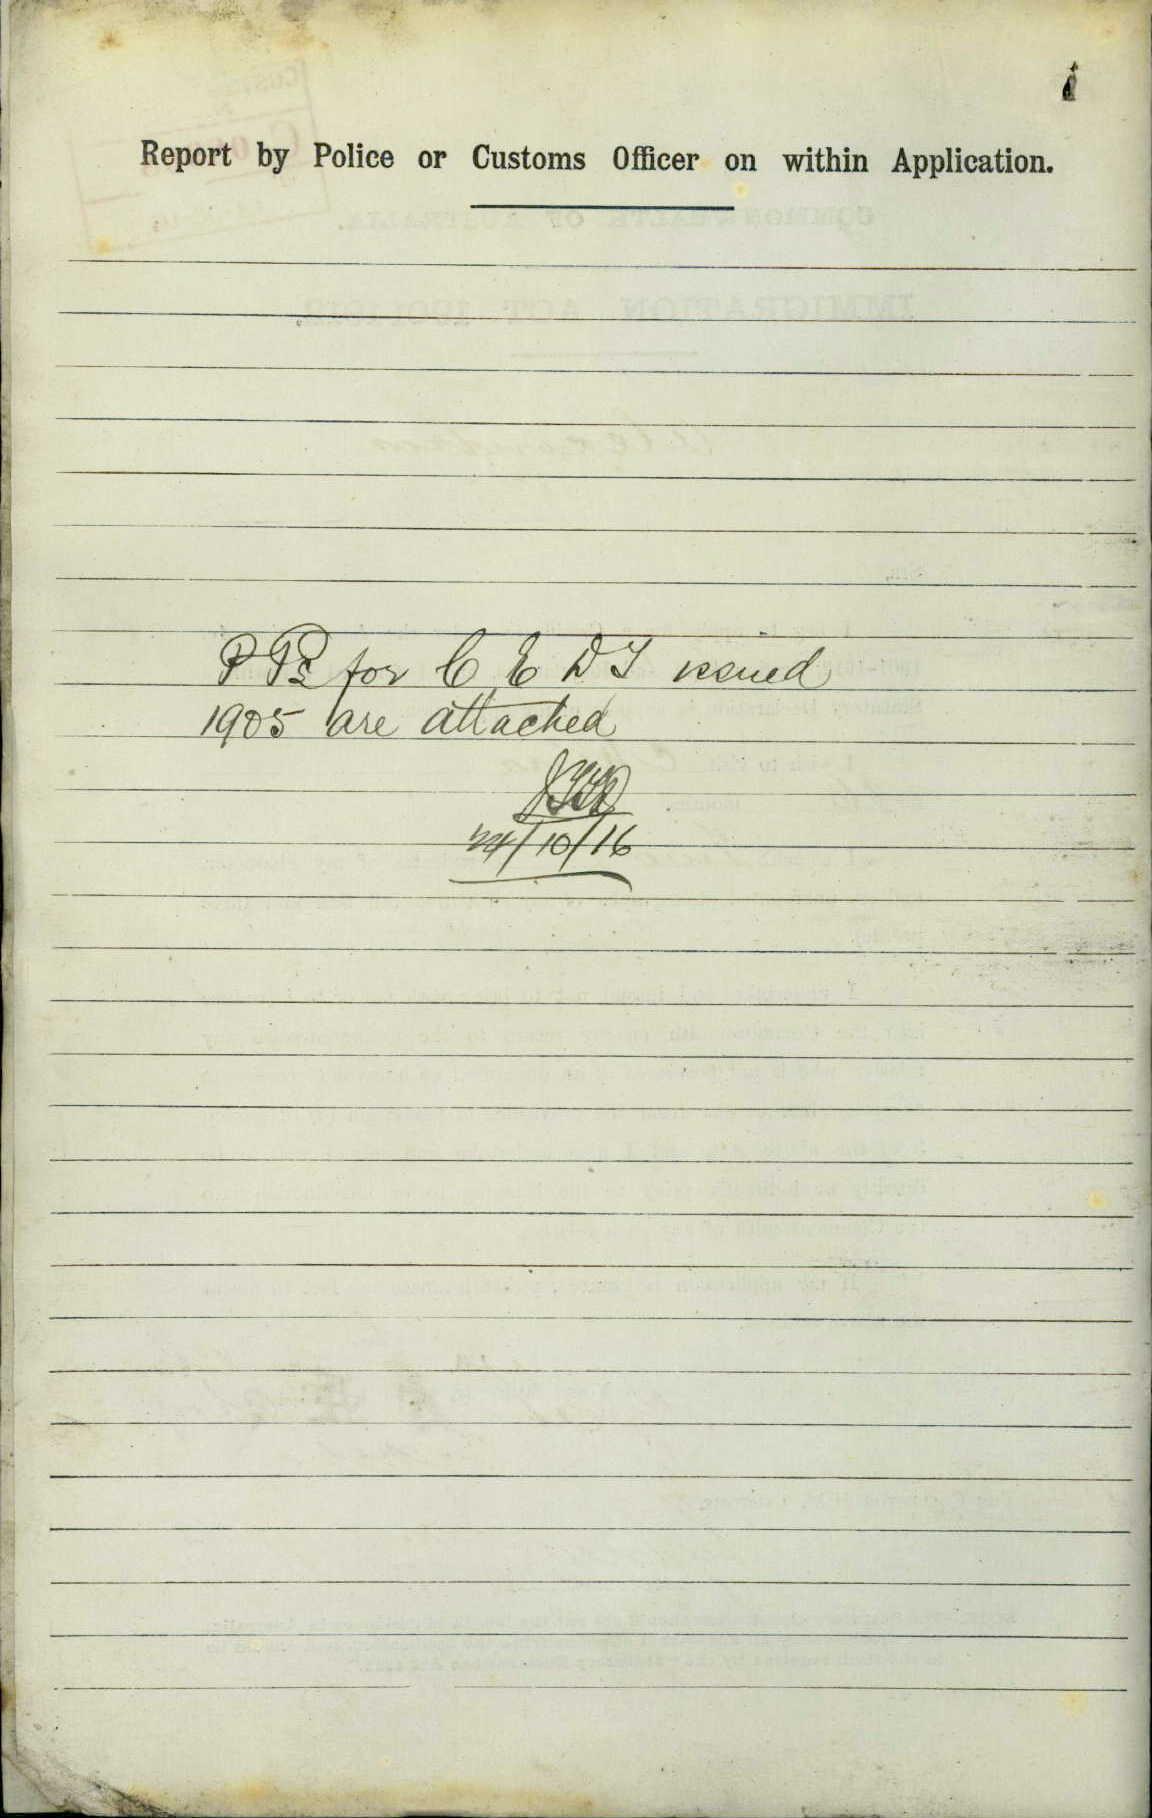 Report by Police or Customs Officer on within Application.
P Ps for C E D T issued
1905 are attached
24/10/16